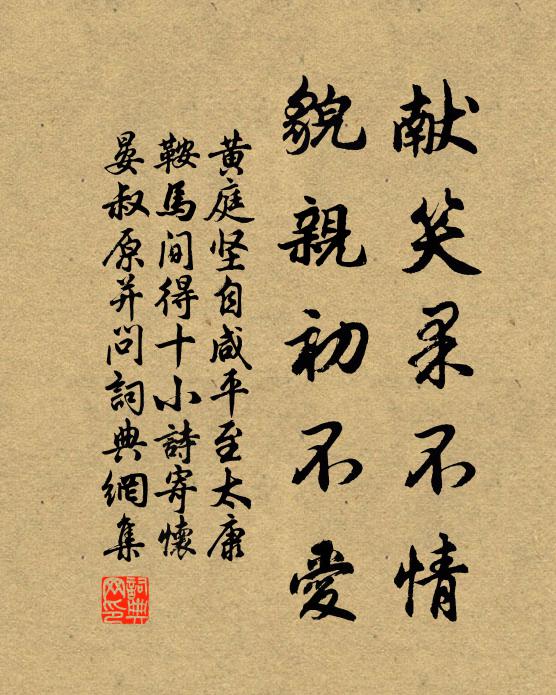 献笑果不情
貌親初不愛
黄庭坚自咸平至太康
鞍馬间得十小詩寄懷
晏叔原并问詞典網集
詞典网印